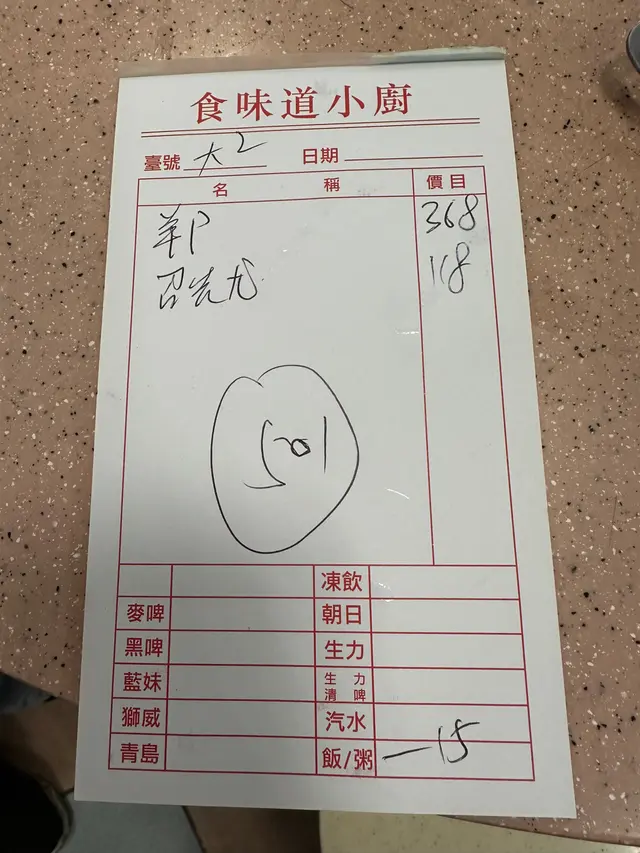 食味道小廚
臺號 大2 日期
名稱 價目
368
118
501
凍飲
麥啤 朝日
黑啤 生力
藍妹 生力清啤
獅威 汽水
青島 飯/粥 一 15